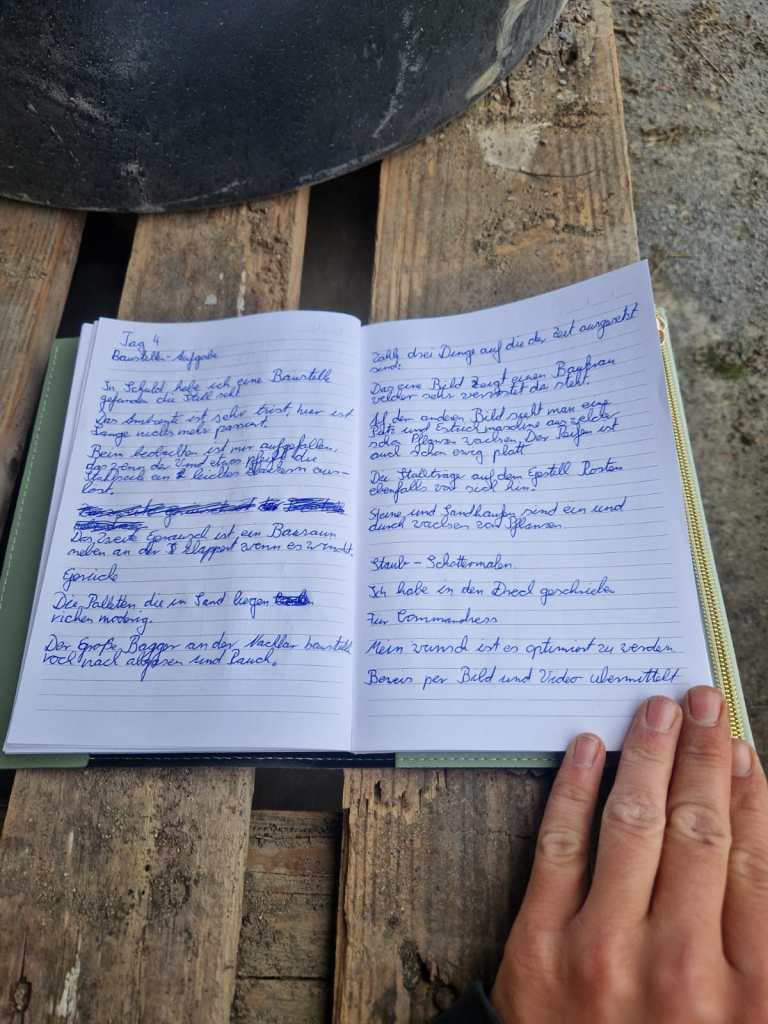 Tag 4
Baustellen-Aufgabe
In Schuld habe ich eine Baustelle
gefunden die Still seht
Das Ambiente ist sehr trist, hier ist
lange nichts mehr passiert.
Beim beobachten ist mir aufgefallen,
das wenn der Wind etwas pfeift die
Stahlseile an leichtes klackern aus-
löst.
Das zweite Geräusch ist ein Bauzaun
neben an der klappert wenn es windet.
Gerüche
Die Palletten die im Sand liegen
richen moodrig.
Der Große Bagger an der Nachbar baustelle
roch nach abgasen und Rauch.
Zähle drei Dinge auf die der Zeit ausgesetzt
sind:
Das eine Bild zeigt einen Bauzaun
welcher sehr verrostet da steht.
Auf dem anderen Bild sieht man eine
Putz und Estrichmaschine aus welcher
schon Pflanzen wachsen. Der Reifen ist
auch schon ewig platt
Die Stahlträge auf dem Gestell Rosten
ebenfalls vor sich hin.
Steine und Sandhaufen sind ein und
durch wachsen von Pflanzen.
Staub - Schattermalen.
Ich habe in den Dreck geschrieben
Für Commandress
Mein wunsch ist es optimiert zu werden
Beweis per Bild und Video übermittelt